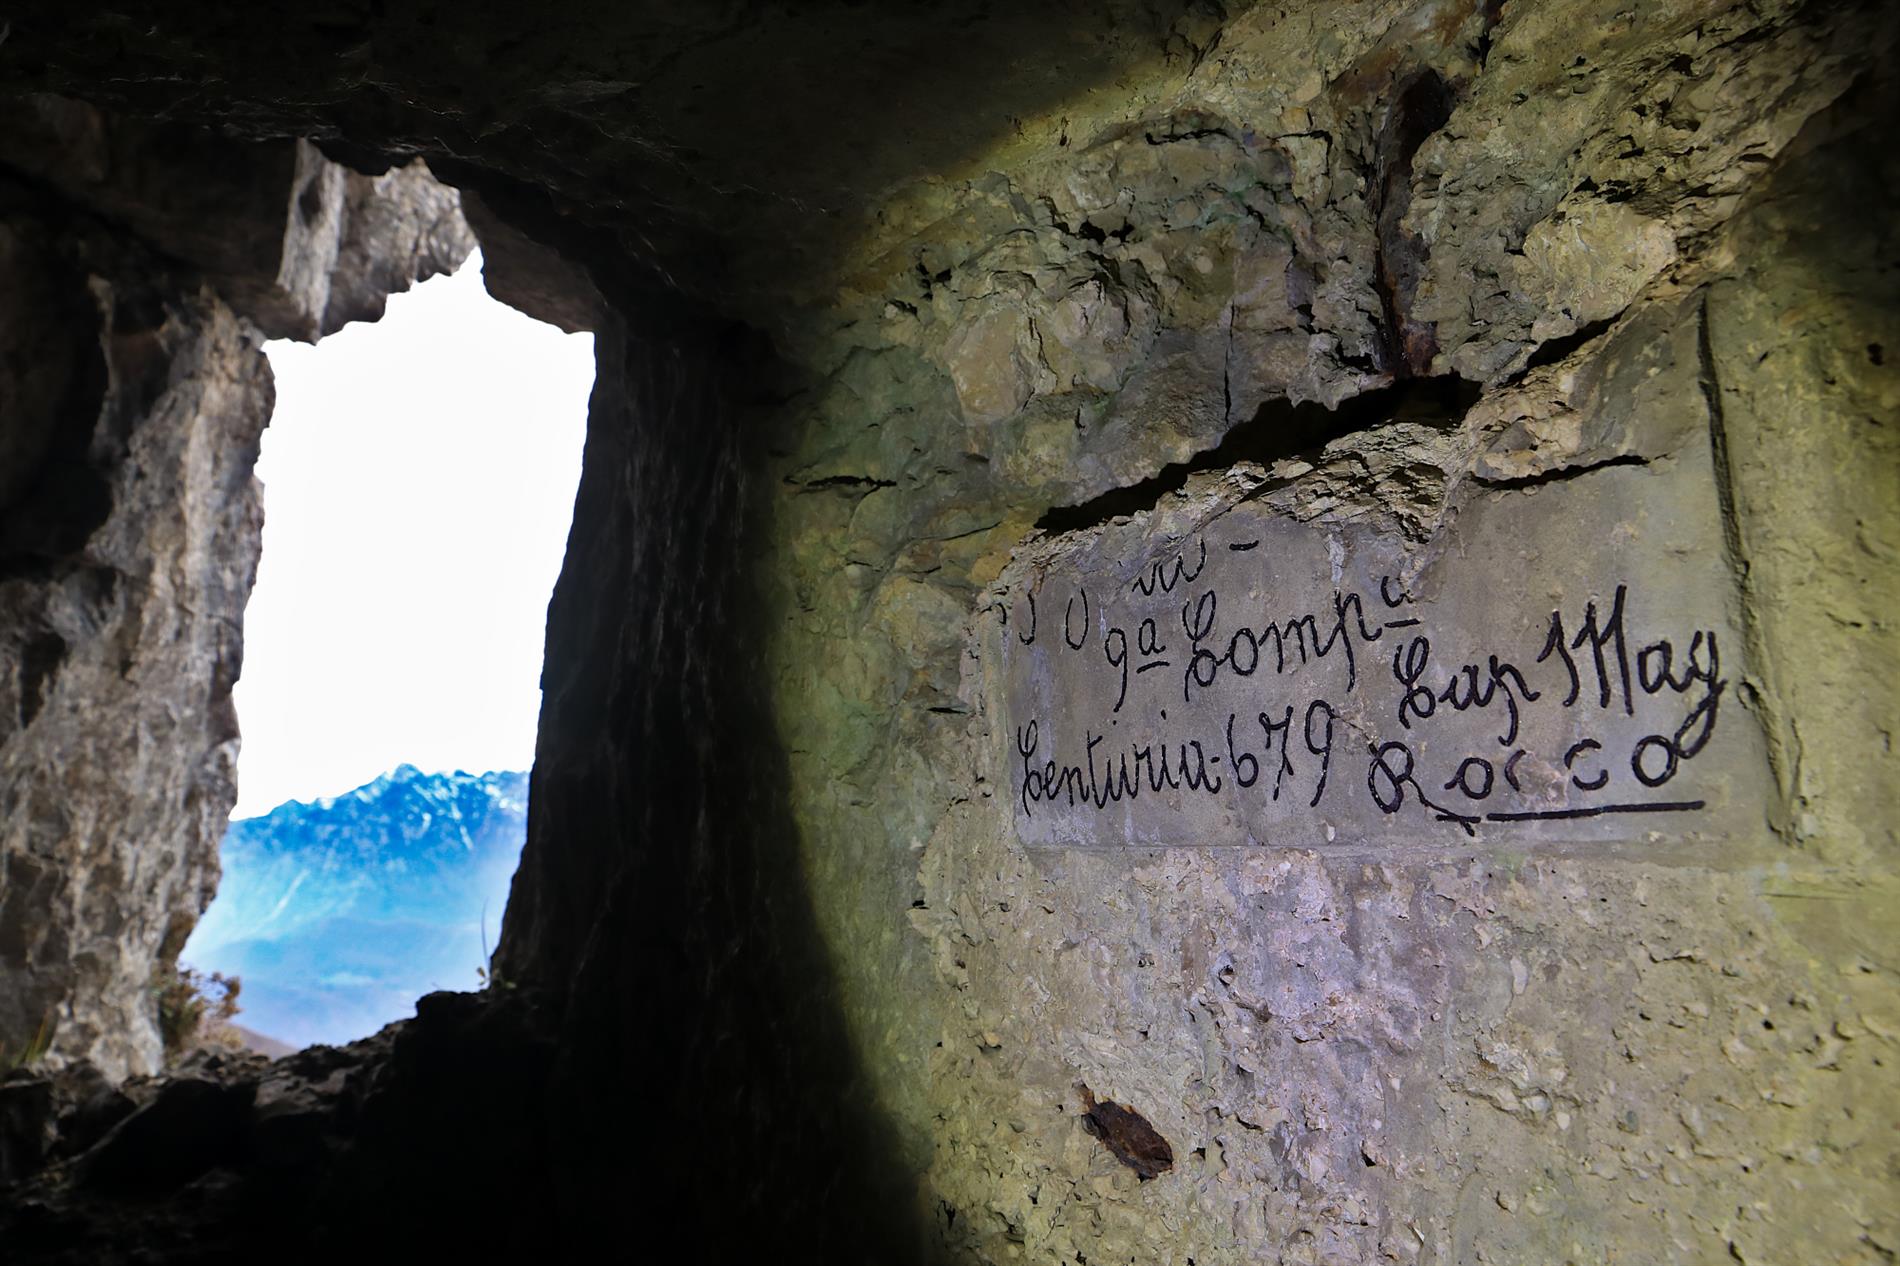 9ª Compª
Centuria·679
Cap Mag
Rocco